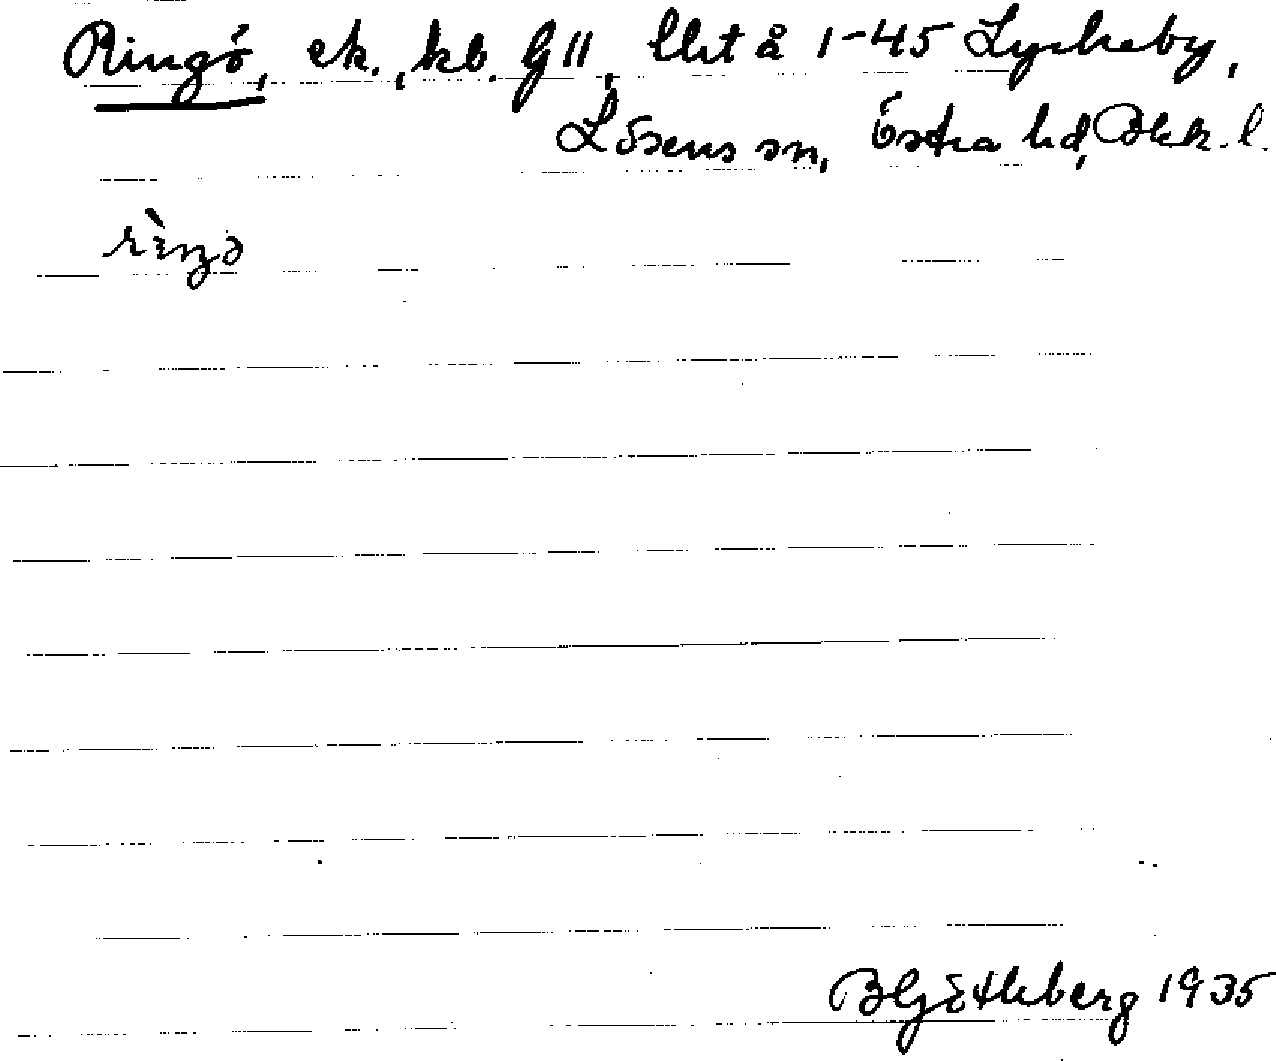 Ringö, ek., kb. G11, Utst å 1-45 Lyckeby,
Lösens sn, Östra hd, Blek. l.
ringə
B Götlberg 1935